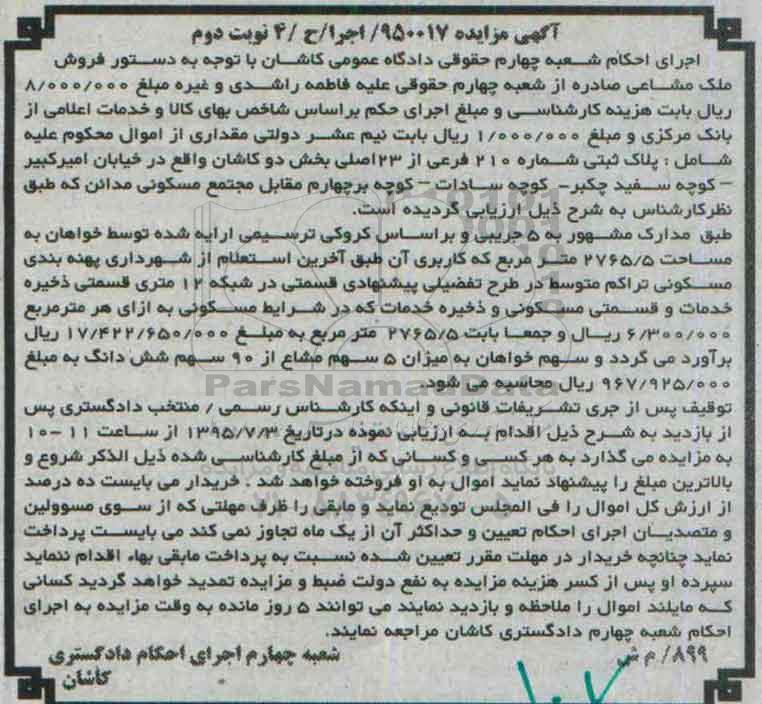 آگهی مزایده ۹۵۰۰۱۷/ اجرا/ح /۴ نوبت دوم
اجرای احکام شعبه چهارم حقوقی دادگاه عمومی کاشان با توجه به دستور فروش
ملک مشاعی صادره از شعبه چهارم حقوقی علیه فاطمه راشدی و غیره مبلغ ۸/۰۰۰/۰۰۰
ریال بابت هزینه کارشناسی و مبلغ اجرای حکم براساس شاخص بهای کالا و خدمات اعلامی از
بانک مرکزی و مبلغ ۱/۰۰۰/۰۰۰ ریال بابت نیم عشر دولتی مقداری از اموال محکوم علیه
شامل : پلاک ثبتی شماره ۲۱۰ فرعی از ۲۳اصلی بخش دو کاشان واقع در خیابان امیرکبیر
– کوچه سفید چکبر– کوچه سادات – کوچه برچهارم مقابل مجتمع مسکونی مدائن که طبق
نظرکارشناس به شرح ذیل ارزیابی گردیده است.
طبق مدارک مشهور به ۵جریبی و براساس کروکی ترسیمی ارایه شده توسط خواهان به
مساحت ۲۷۶۵/۵ متر مربع که کاربری آن طبق آخرین استعلام از شهرداری پهنه بندی
مسکونی تراکم متوسط در طرح تفضیلی پیشنهادی قسمتی در شبکه ۱۲ متری قسمتی ذخیره
خدمات و قسمتی مسکونی و ذخیره خدمات که در شرایط مسکونی به ازای هر مترمربع
۶/۳۰۰/۰۰۰ ریال و جمعا بابت ۲۷۶۵/۵ متر مربع به مبلغ ۱۷/۴۲۲/۶۵۰/۰۰۰ ریال
برآورد می گردد و سهم خواهان به میزان ۵ سهم مشاع از ۹۰ سهم شش دانگ به مبلغ
۹۶۷/۹۲۵/۰۰۰ ریال محاسبه می شود.
توقیف پس از جری تشریفات قانونی و اینکه کارشناس رسمی / منتخب دادگستری پس
از بازدید به شرح ذیل اقدام به ارزیابی نموده درتاریخ ۱۳۹۵/۷/۳ از ساعت ۱۱ -۱۰
به مزایده می گذارد به هر کسی و کسانی که از مبلغ کارشناسی شده ذیل الذکر شروع و
بالاترین مبلغ را پیشنهاد نماید اموال به او فروخته خواهد شد . خریدار می بایست ده درصد
از ارزش کل اموال را فی المجلس تودیع نماید و مابقی را ظرف مهلتی که از سوی مسوولین
و متصدیان اجرای احکام تعیین و حداکثر آن از یک ماه تجاوز نمی کند می بایست پرداخت
نماید چنانچه خریدار در مهلت مقرر تعیین شده نسبت به پرداخت مابقی بهاء اقدام ننماید
سپرده او پس از کسر هزینه مزایده به نفع دولت ضبط و مزایده تمدید خواهد گردید کسانی
که مایلند اموال را ملاحظه و بازدید نمایند می توانند ۵ روز مانده به وقت مزایده به اجرای
احکام شعبه چهارم دادگستری کاشان مراجعه نمایند.
۸۹۹/ م ش
شعبه چهارم اجرای احکام دادگستری
کاشان
ParsNamadData
۱۰۷